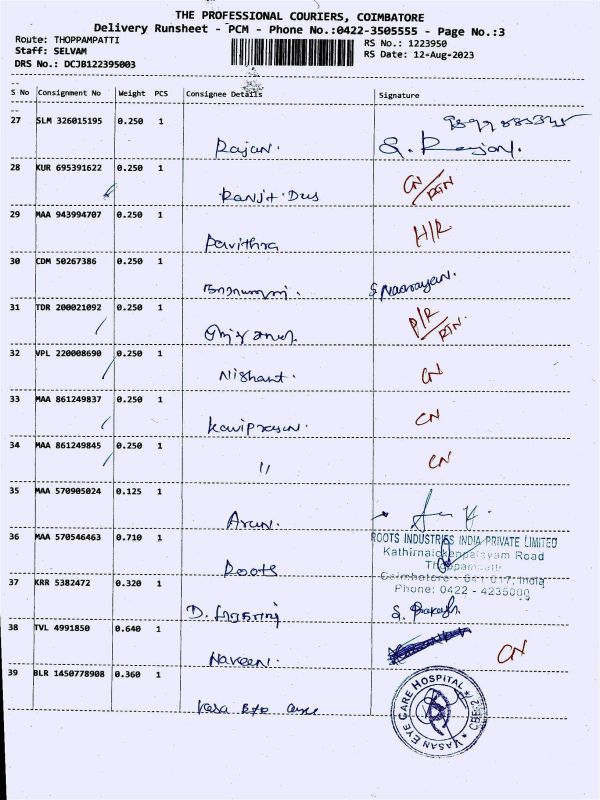 THE PROFESSIONAL COURIERS, COIMBATORE
Delivery Runsheet - PCM - Phone No.:0422-3505555 - Page No.:3
Route: THOPPAMPATTI RS No.: 1223950
Staff: SELVAM RS Date: 12-Aug-2023
DRS No.: DCJB122395003
S No Consignment No Weight PCS Consignee Details Signature
27 SLM 326015195 0.250 1
Rajan. S. Rajan.
28 KUR 695391622 0.250 1 CN/RTN
Ranjit Das
29 MAA 943994707 0.250 1 H/R
Pavithra
30 CDM 50267386 0.250 1
S Naarayan.
31 TDR 200021092 0.250 1 P/R/RTN.
32 VPL 220008690 0.250 1
Nishant. CN
33 MAA 861249837 0.250 1 CN
34 MAA 861249845 0.250 1
" CN
35 MAA 570905024 0.125 1
Arun.
36 MAA 570546463 0.710 1 ROOTS INDUSTRIES INDIA PRIVATE LIMITED
Kathirnaickenpalayam Road
Roots Thoppampatti
Coimbatore - 641 017, India
37 KRR 5382472 0.320 1 Phone: 0422 - 4235000
D. S. Prakash
38 TVL 4991850 0.640 1 CN
Naveen.
39 BLR 1450778908 0.360 1
Vasa Eye
VASAN EYE CARE HOSPITAL